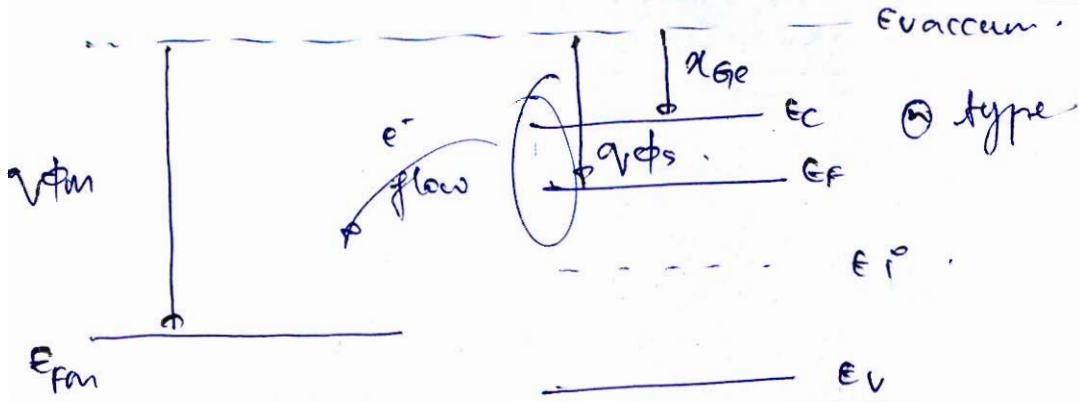 Evaccum.
χGe
EC
ⓝ type
e-
flow
qΦs.
EF
qΦm
Ei
EFm
EV